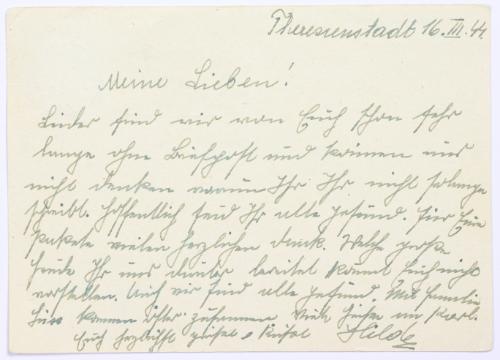 Theresienstadt 16. III. 44.
Meine Lieben!
Leider sind wir von Euch schon sehr
lange ohne Briefpost und können uns
nicht denken warum Ihr Ihr nicht solange
schreibt. Hoffentlich seid Ihr alle gesund. Für Eure
Pakete vielen herzlichen Dank. Welche große
Freude Ihr uns damit bereitet könnt Euch nicht
vorstellen. Auch wir sind alle gesund. Mit Familie
kommen öfter zusammen Viele Küsse an Karl.
Euch herzlichst grüsst u. küsst Hilde